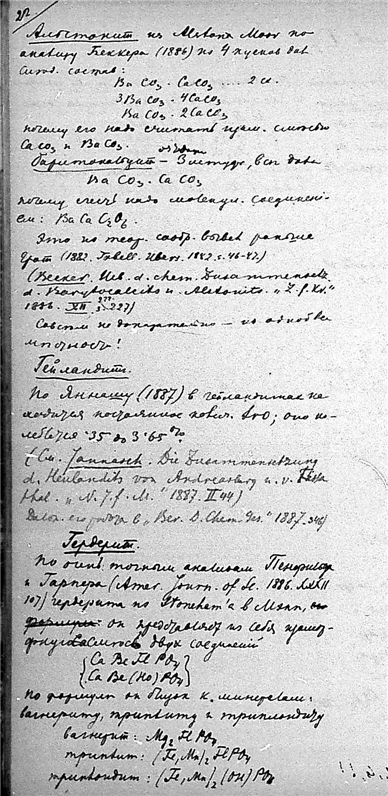 22
Альстонит из Alston Moor по
анализу Беккера (1886) из 4 кусков дал
след. состав:
BaCO3 · CaCO3 .... 2 ан.
3BaCO3 · 4CaCO3
BaCO3 · 2CaCO3
почему его надо считать изом. смесью
CaCO3 и BaCO3.
Баритокальцит – 3 все дали
BaCO3 · CaCO3
почему счесть надо молекул. соединени-
ем: BaCaC2O6.
Это по теор. сообр. вывел раньше
Грот (1882. Tabell. Übers. 1882. s. 46-47.)
(Becker. Ueb. d. chem. Zusammensetz.
d. Barytocalcits u. Alstonits. „Z. f. Kr."
1886. XII 227)
Совсем не доказательно – но
Гейландит.
По Яннашу (1887) в гейландитах на-
ходится постоянное колич. SrO; оно ко-
леблется ·35 до 3·65 %.
(См. Jannasch. Die Zusammensetzung
d. Heulandits von Andreasberg u. v. Fassa
thal. „N. J. f. M." 1887. II 44)
его работа в „Ber. D. Chem. Ges." 1887. 346)
Гердерит.
По очень точным анализам Пенфильда
и Гарпера (Amer. Journ. of Sc. 1886. XXXII
107) гердерита из Stoneham'a в Мэнн,
он представляет из себя изомор-
фную смесь двух соединений
{ Ca Be Fl PO4
Ca Be (HO) PO4 }
По формуле он близок к минералам:
вагнериту, триплиту и триплоидиту
вагнерит: Mg2 Fl PO4
триплит: (Fe, Mn)2 Fl PO4
триплоидит: (Fe, Mn)2 (OH) PO4